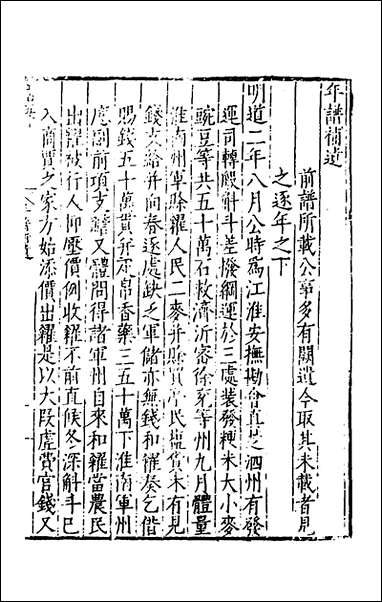 年譜補遺
前譜所載公事多有闕遺今取其未載者見
之逐年之下
明道二年八月公時為江淮安撫勘會真楚泗州有發
運司轉般斛斗差撥綱運於三處裝發粳米大小麥
豌豆等共五十萬石救濟沂密徐兗等州九月體量
淮南州軍賒糴人民二麥并賒買亭民鹽貨未有見
錢支給并向春逐處缺乏軍儲亦無錢和糴奏乞借
賜錢五十萬貫并疋帛香藥三五十萬下淮南軍州
應副前項支 又體問得諸軍州自來和糴當農民
出糶被行人仰壓價例收糴不前直候冬深斛斗已
入商賈之家方始添價出糴是以大段虛費官錢又